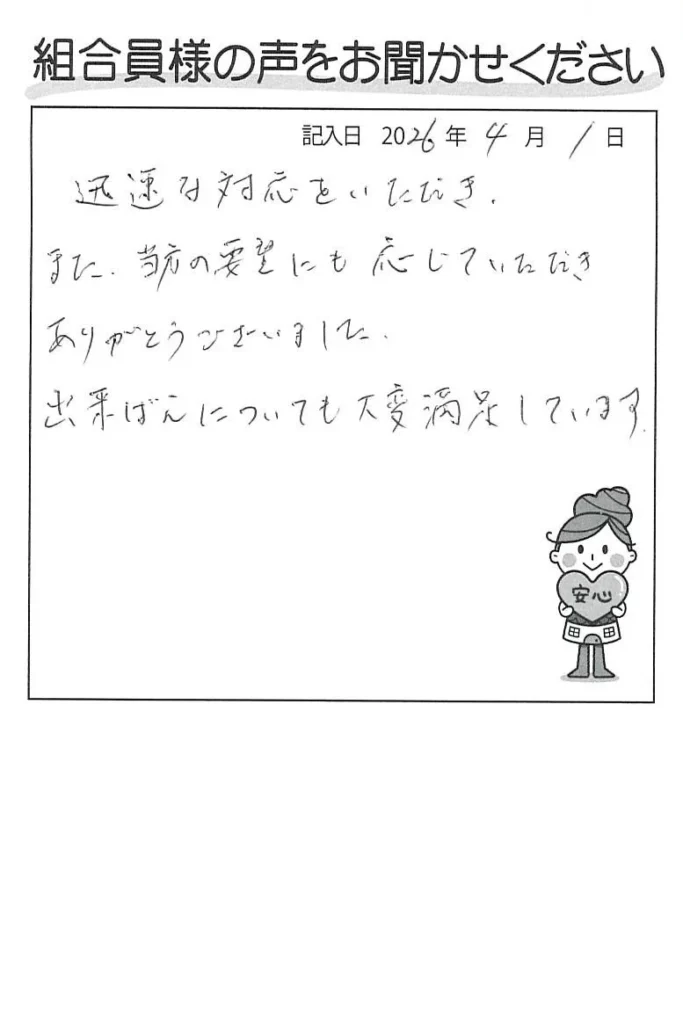 組合員様の声をお聞かせください
記入日 2026年 4月 1日
迅速な対応をいただき、
また、当方の要望にも応じていただき
ありがとうございました。
出来ばえについても大変満足しています。
安心